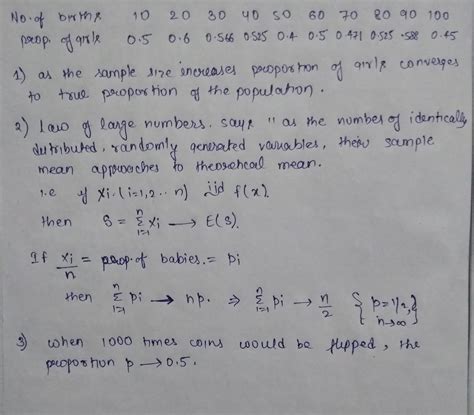 No. of births 10 20 30 40 50 60 70 80 90 100
prop. of girls 0.5 0.6 0.566 0.525 0.4 0.5 0.471 0.525 .588 0.45
1) as the sample size increases proportion of girls converges
to true proportion of the population.
2) Law of large numbers. says " as the number of identically
distributed, randomly generated variables, their sample
mean approaches to theoretical mean.
i.e if Xi.(i=1,2.. n) iid f(x).
then S = Σ_{i=1}^{n} Xi → E(S).
If Xi/n = prop. of babies. = Pi
then Σ_{i=1}^{n} Pi → np. ⇒ Σ_{i=1}^{n} Pi → n/2 { p=1/2, n→∞ }
3) when 1000 times coins would be flipped, the
proportion p → 0.5.